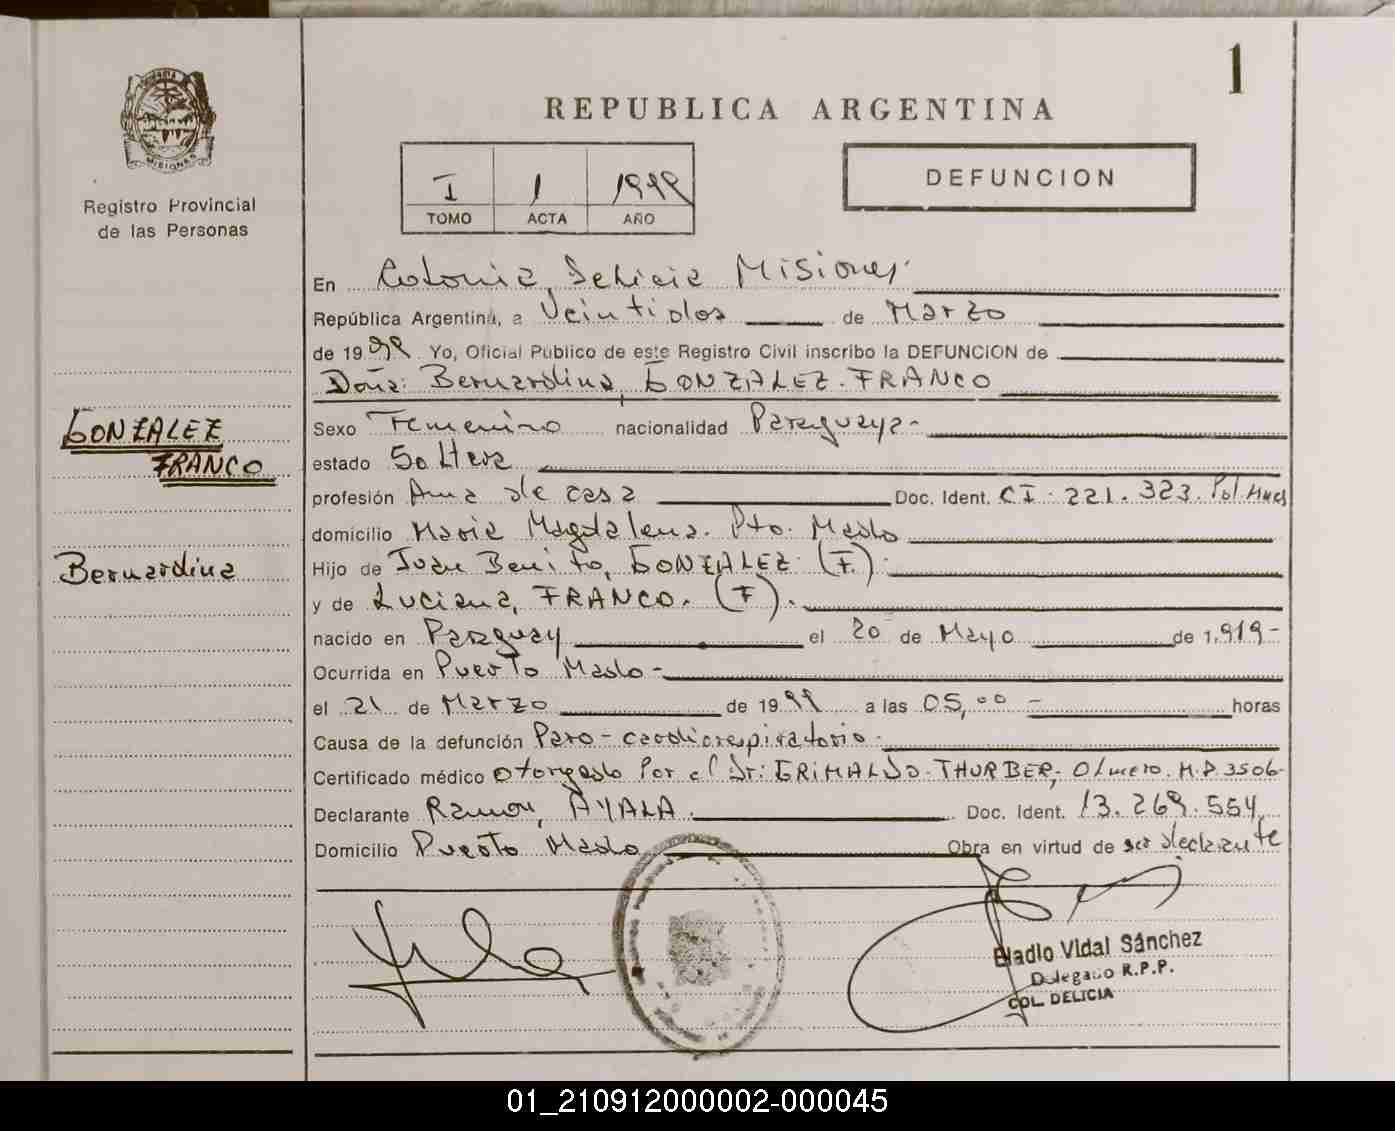 1
MISIONES
Registro Provincial
de las Personas
GONZALEZ
FRANCO
Bernardina
REPUBLICA ARGENTINA
I 1 1999
TOMO ACTA AÑO
DEFUNCION
En Colonia, Delicia Misiones.
República Argentina, a Veintidos de Marzo
de 1999 Yo, Oficial Público de este Registro Civil inscribo la DEFUNCION de
Doña: Bernardina, GONZALEZ. FRANCO
Sexo Femenino nacionalidad Paraguaya-
estado Soltera
profesión Ama de casa Doc. Ident. CI. 221.323. Pol. Mnes
domicilio Maria Magdalena. Pto. Mado
Hijo de Juan Benito, GONZALEZ (F).
y de Luciana, FRANCO. (F).
nacido en Paraguay el 20 de Mayo de 1.919-
Ocurrida en Puerto Mado-
el 21 de Marzo de 1999 a las 05,00 - horas
Causa de la defunción Paro-cardiorespiratorio.
Certificado médico otorgado Por el Dr: GRIMALDO-THURBER, Olmero. M.P 3506-
Declarante Ramon, AYALA. Doc. Ident. 13.269.554,
Domicilio Puerto Mado Obra en virtud de ser declarante
Eladio Vidal Sánchez
Delegado R.P.P.
COL. DELICIA
01_210912000002-000045